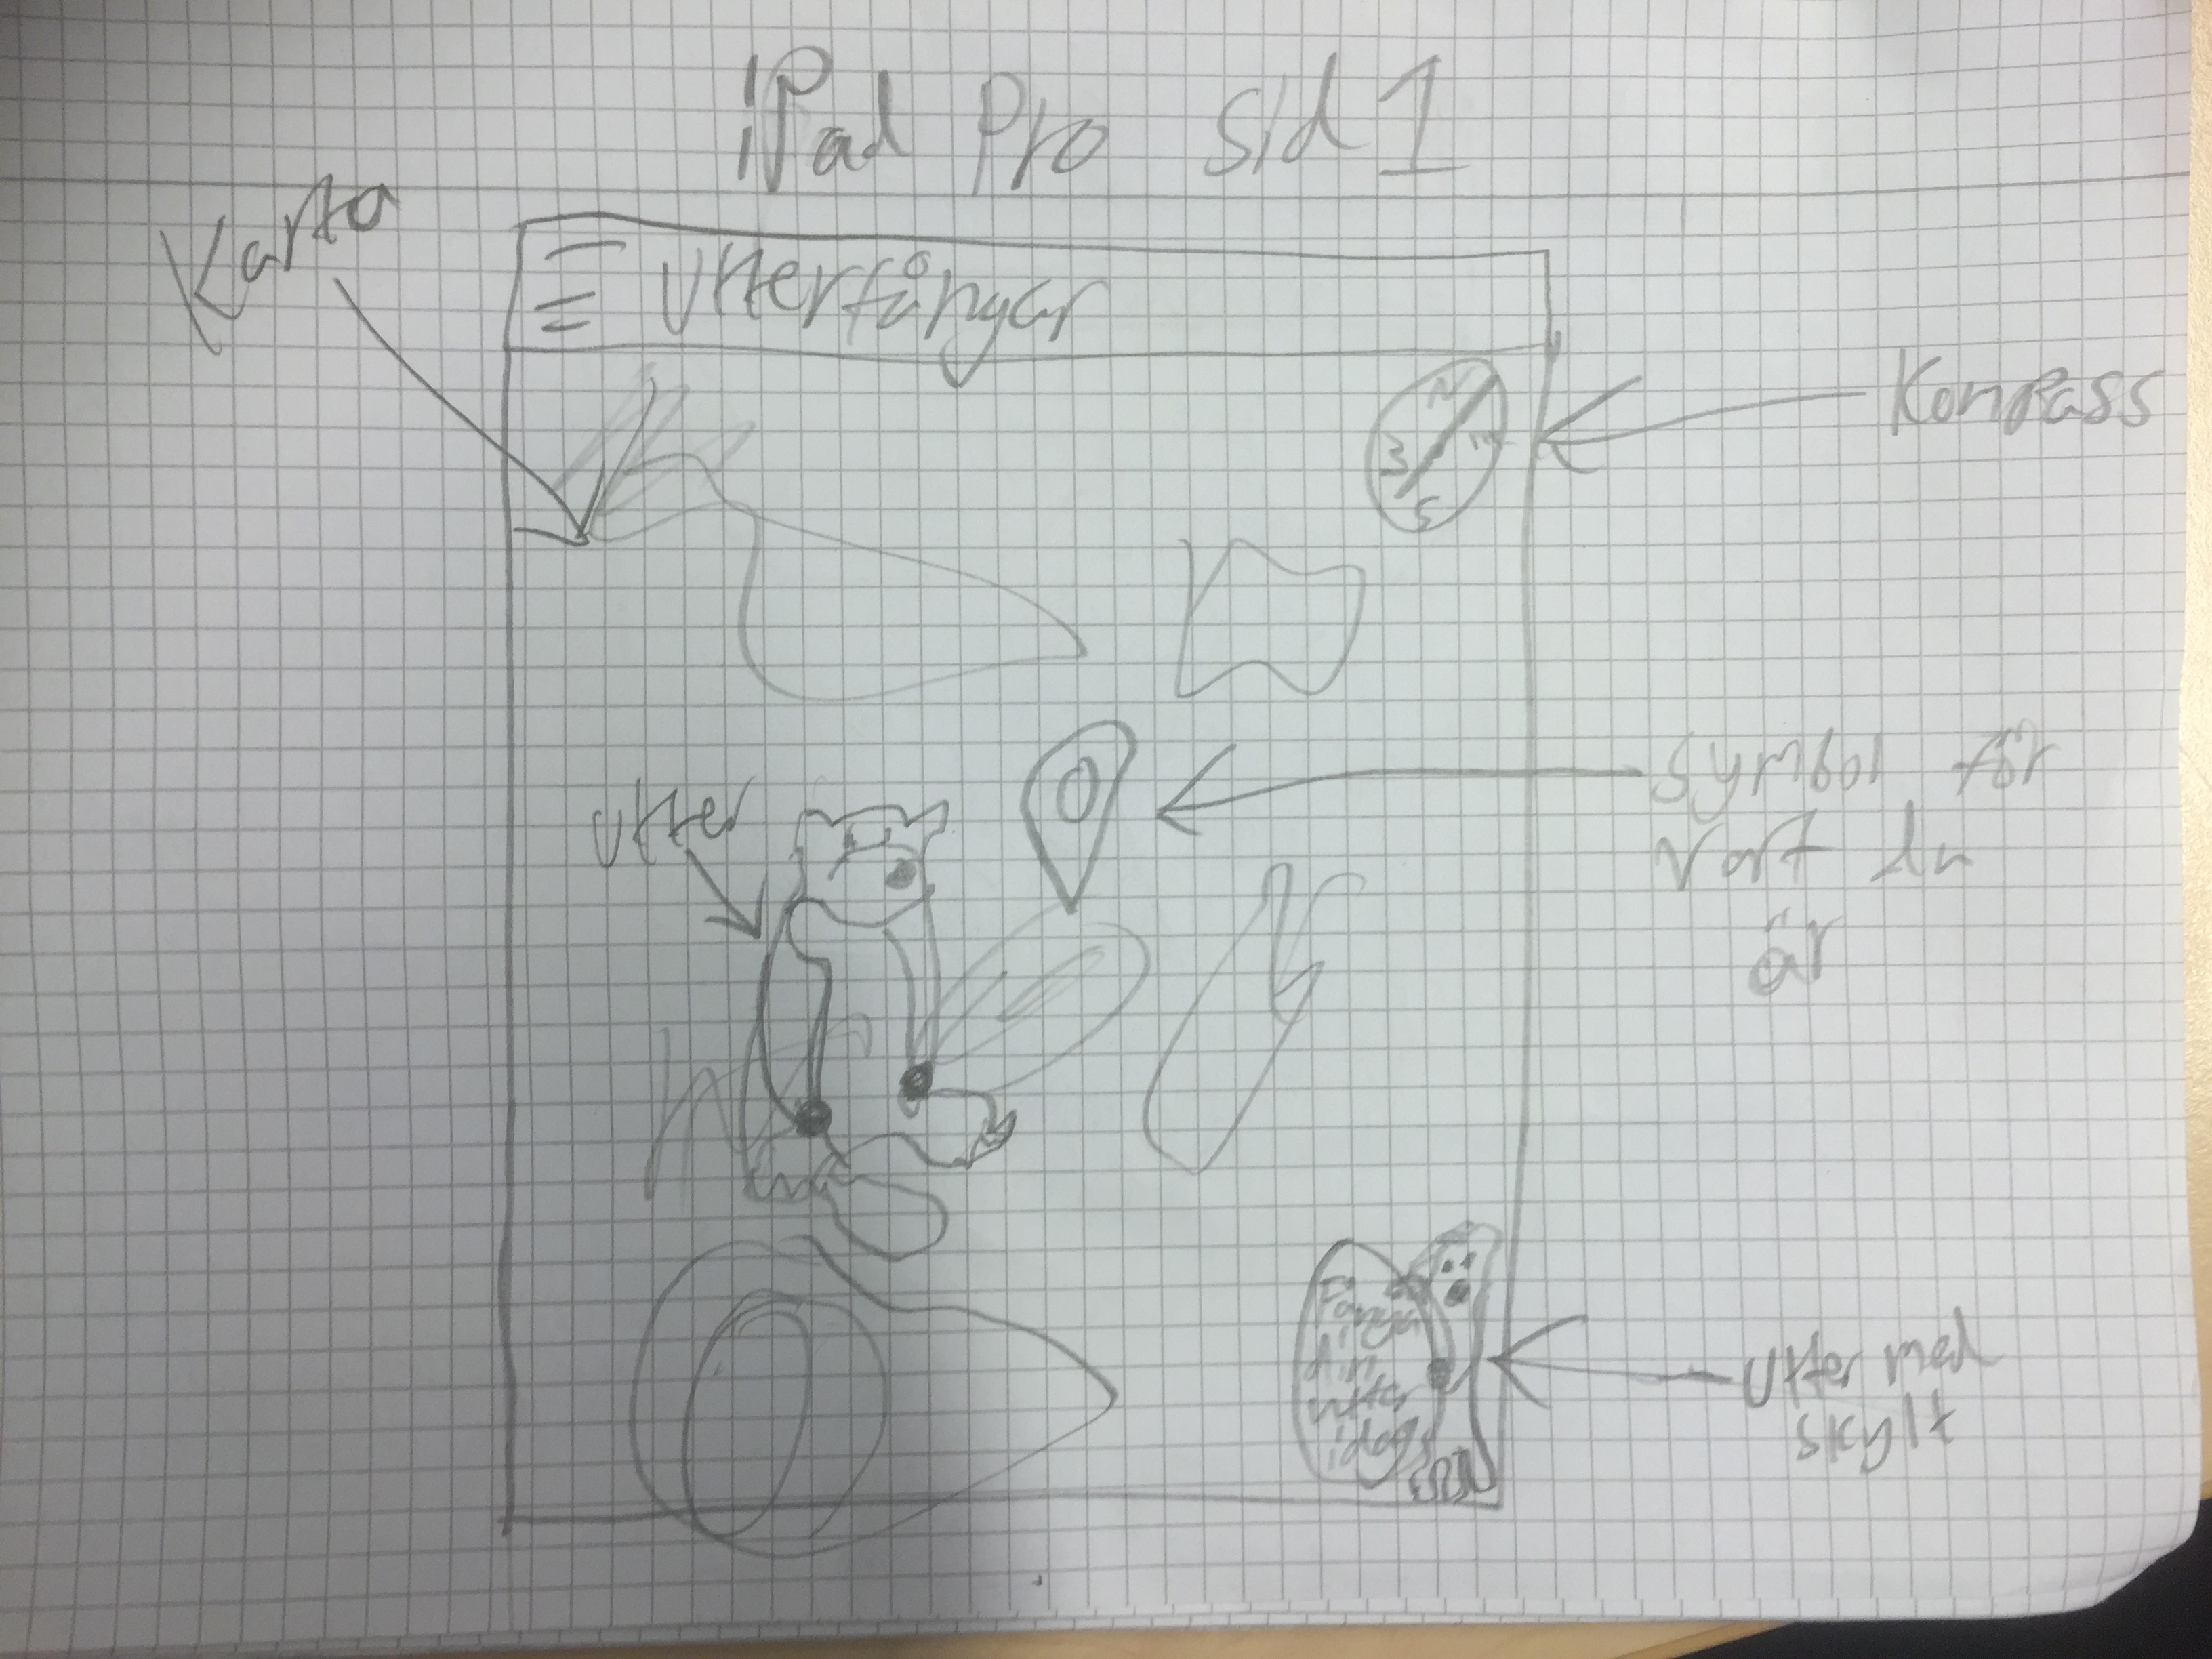 iPad Pro sid 1
Karta
Utterfångar
N
S
Kompass
Symbol för
Vart du
är
utter
Fånga
din
utter
idag
Utter med
skylt